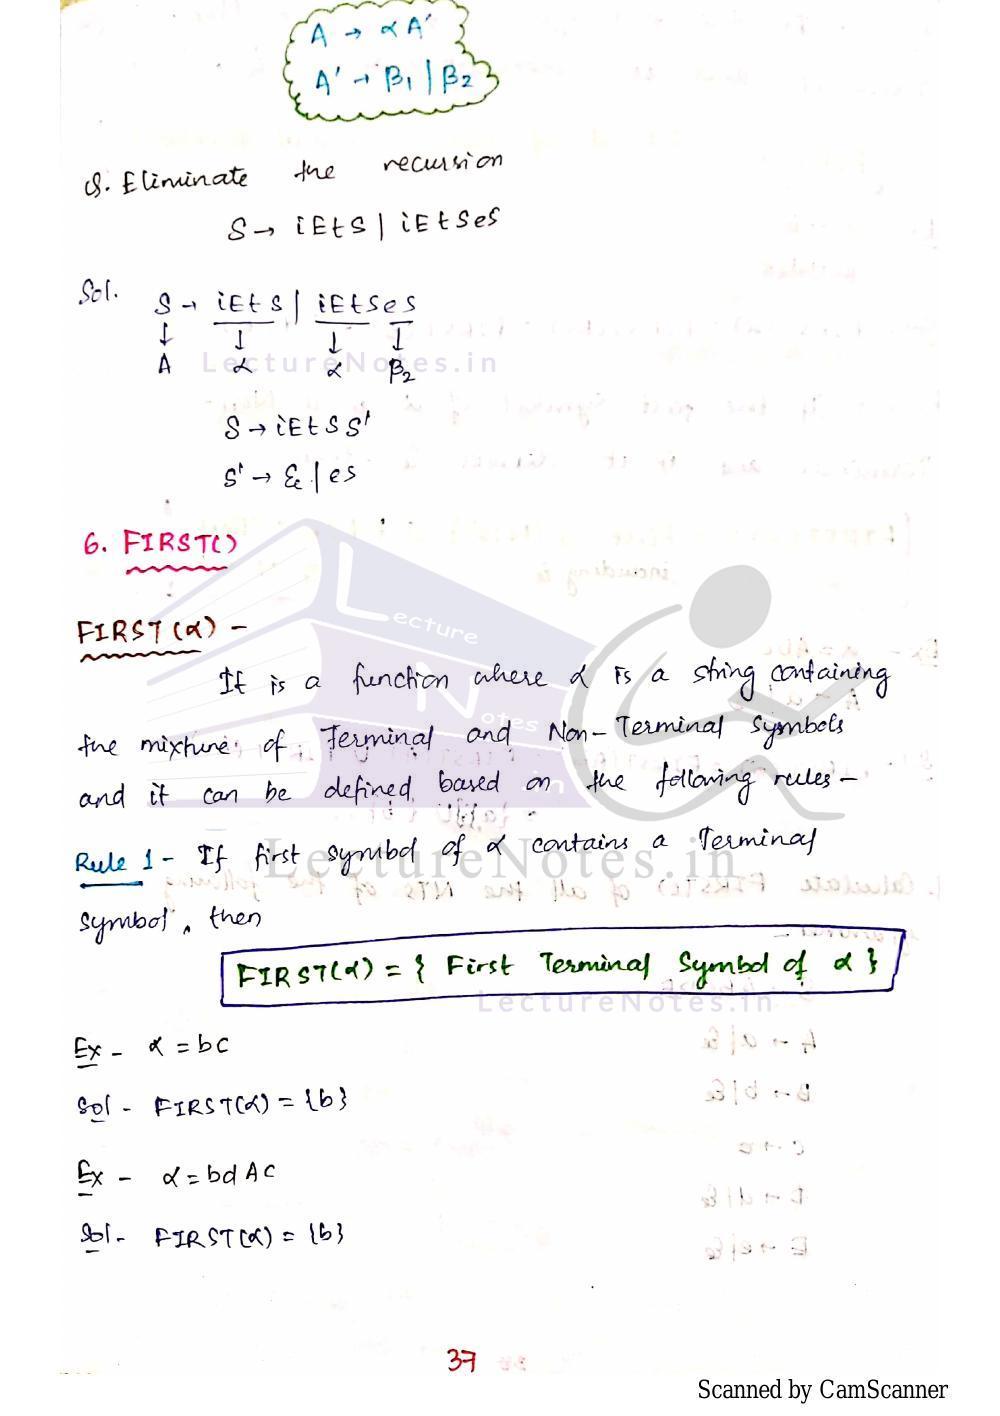 A → αA'
A' → β1 | β2
Q. Eliminate the recursion
S → iEtS | iEtSeS
Sol. S → iEtS | iEtSeS
↓ ↓ ↓ ↓
A α α β2
LectureNotes.in
S → iEtSS'
S' → ε | es
6. FIRST()
Lecture
Notes
.in
FIRST(α) -
It is a function where α is a string containing
the mixture of Terminal and Non-Terminal symbols
and it can be defined based on the following rules -
Rule 1 - If first symbol of α contains a Terminal
LectureNotes.in
symbol, then
FIRST(α) = { First Terminal Symbol of α }
LectureNotes.in
Ex - α = bc
Sol - FIRST(α) = {b}
Ex - α = bdAc
Sol - FIRST(α) = {b}
37
Scanned by CamScanner